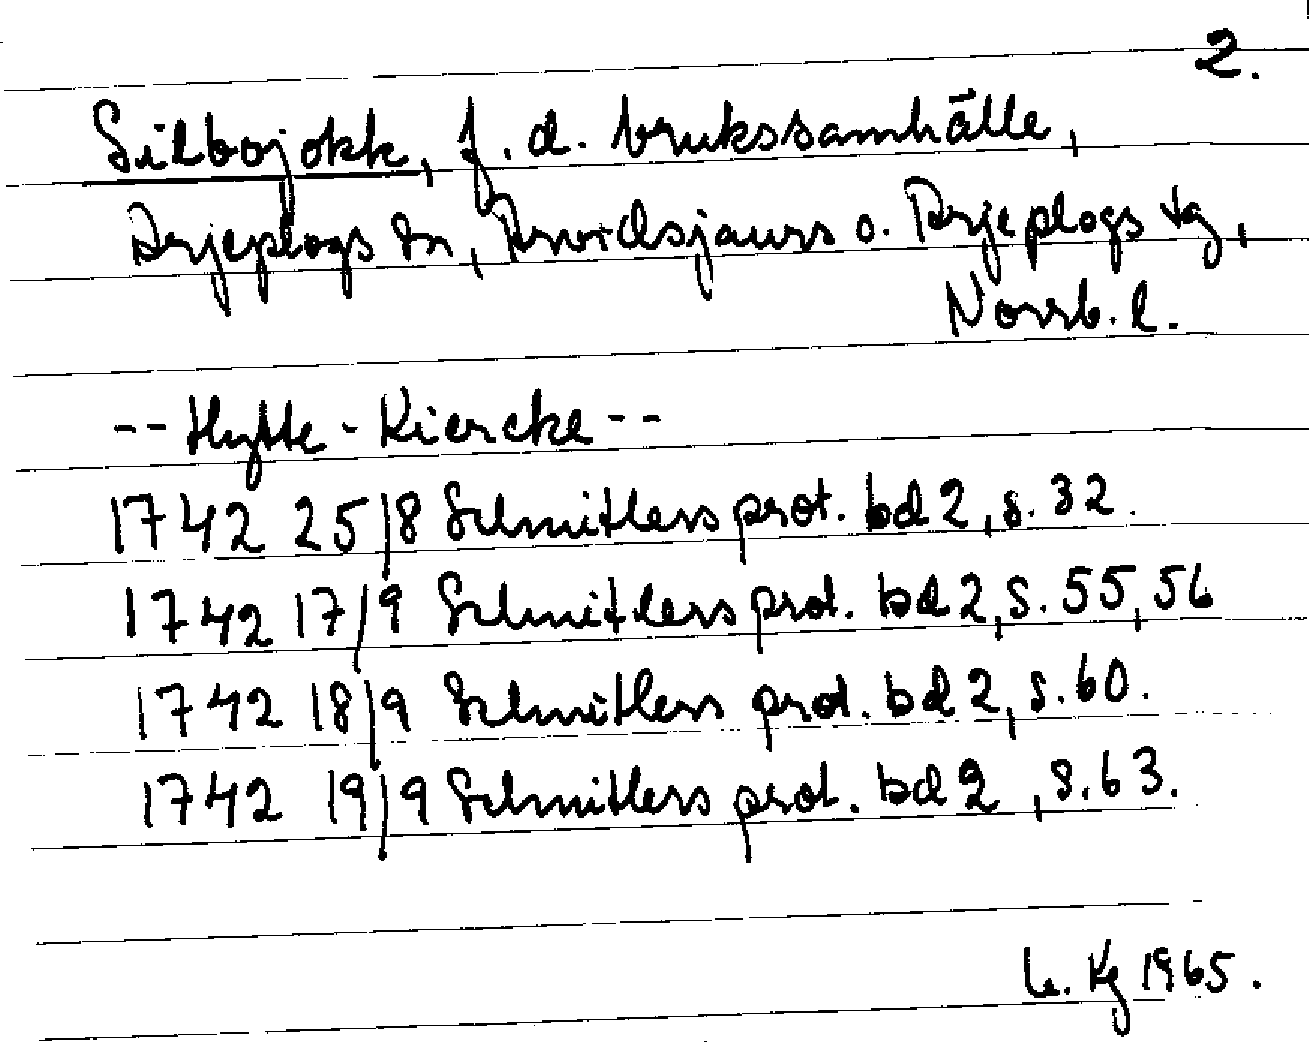 2.
Silbojokk, f.d. brukssamhälle,
Arjeplogs sn, Arvidsjaurs o. Arjeplogs tg,
Norrb. l.
-- Hytte-Kiercke --
1742 25/8 Schnitlers prot. bd 2, s. 32.
1742 17/9 Schnitlers prot. bd 2, s. 55, 56
1742 18/9 Schnitlers prot. bd 2, s. 60.
1742 19/9 Schnitlers prot. bd 2, s. 63.
1965.